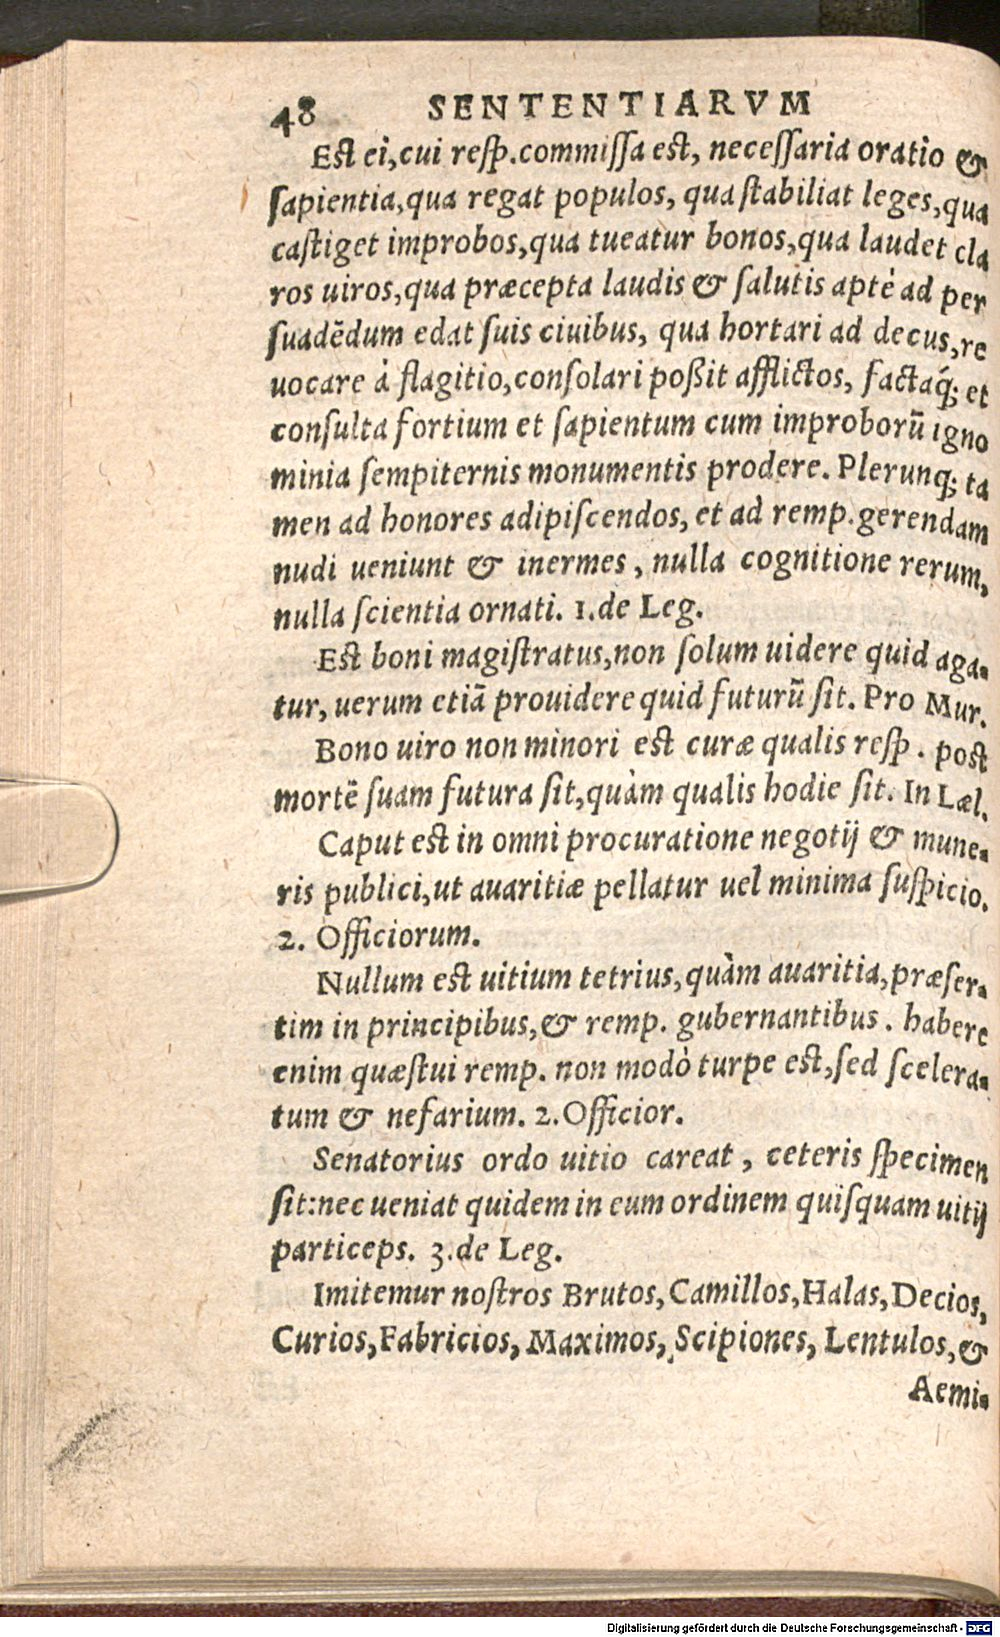 48 SENTENTIARVM
Est ei, cui resp. commissa est, necessaria oratio &
sapientia, qua regat populos, qua stabiliat leges, qua
castiget improbos, qua tueatur bonos, qua laudet cla
ros uiros, qua præcepta laudis & salutis aptè ad per
suadēdum edat suis ciuibus, qua hortari ad decus, re
uocare à flagitio, consolari poßit afflictos, factaq́; et
consulta fortium et sapientum cum improborū igno
minia sempiternis monumentis prodere. Plerunq; ta
men ad honores adipiscendos, et ad remp. gerendam
nudi ueniunt & inermes, nulla cognitione rerum,
nulla scientia ornati. 1. de Leg.
Est boni magistratus, non solum uidere quid aga-
tur, uerum etiā prouidere quid futurū sit. Pro Mur.
Bono uiro non minori est curæ qualis resp. post
mortē suam futura sit, quàm qualis hodie sit. In Læl.
Caput est in omni procuratione negotij & mune-
ris publici, ut auaritiæ pellatur uel minima suspicio.
2. Officiorum.
Nullum est uitium tetrius, quàm auaritia, præser-
tim in principibus, & remp. gubernantibus. habere
enim quæstui remp. non modò turpe est, sed scelera-
tum & nefarium. 2. Officior.
Senatorius ordo uitio careat, ceteris specimen
sit: nec ueniat quidem in eum ordinem quisquam uitij
particeps. 3. de Leg.
Imitemur nostros Brutos, Camillos, Halas, Decios,
Curios, Fabricios, Maximos, Scipiones, Lentulos, &
Aemi-
Digitalisierung gefördert durch die Deutsche Forschungsgemeinschaft - DFG